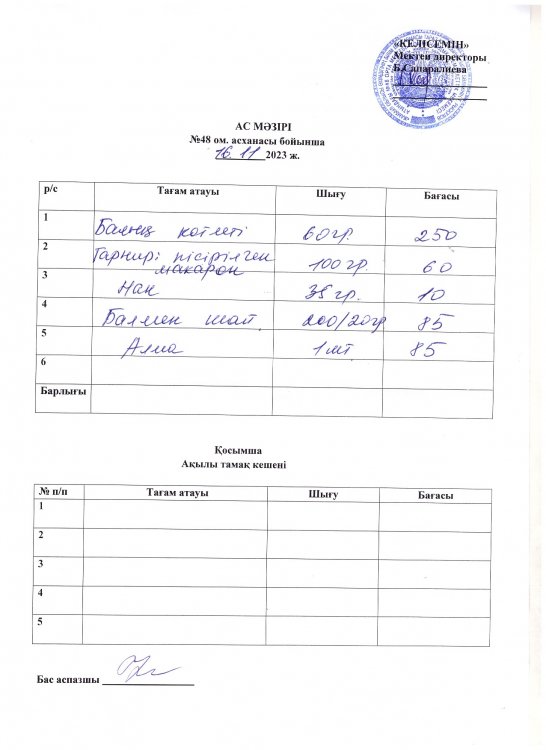 «КЕЛІСЕМІН»
Мектеп директоры
Б.Сапаралиева
АС МӘЗІРІ
№48 ом. асханасы бойынша
16. 11 2023 ж.
р/с Тағам атауы Шығу Бағасы
1 Балық котлеті 60гр. 250
2 Гарнир: пісірілген макарон 100гр. 60
3 Нан 35 гр. 10
4 Балмен шай 200/20гр 85
5 Алма 1шт 85
6
Барлығы
Қосымша
Ақылы тамақ кешені
№ п/п Тағам атауы Шығу Бағасы
1
2
3
4
5
Бас аспазшы